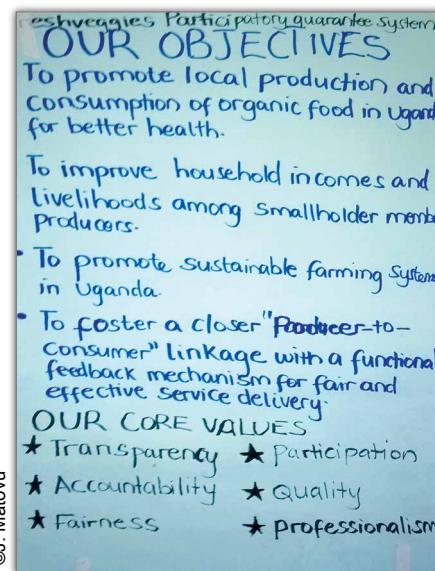 eshveggies Participatory guarantee system
OUR OBJECTIVES
To promote local production and
consumption of organic food in Ugand
for better health.
To improve household incomes and
livelihoods among smallholder membe
producers.
• To promote sustainable farming system
in Uganda.
• To foster a closer "Producer-to-
consumer" linkage with a functional
feedback mechanism for fair and
effective service delivery.
OUR CORE VALUES
★ Transparency ★ Participation
★ Accountability ★ Quality
★ Fairness ★ professionalism
©J. Matovu